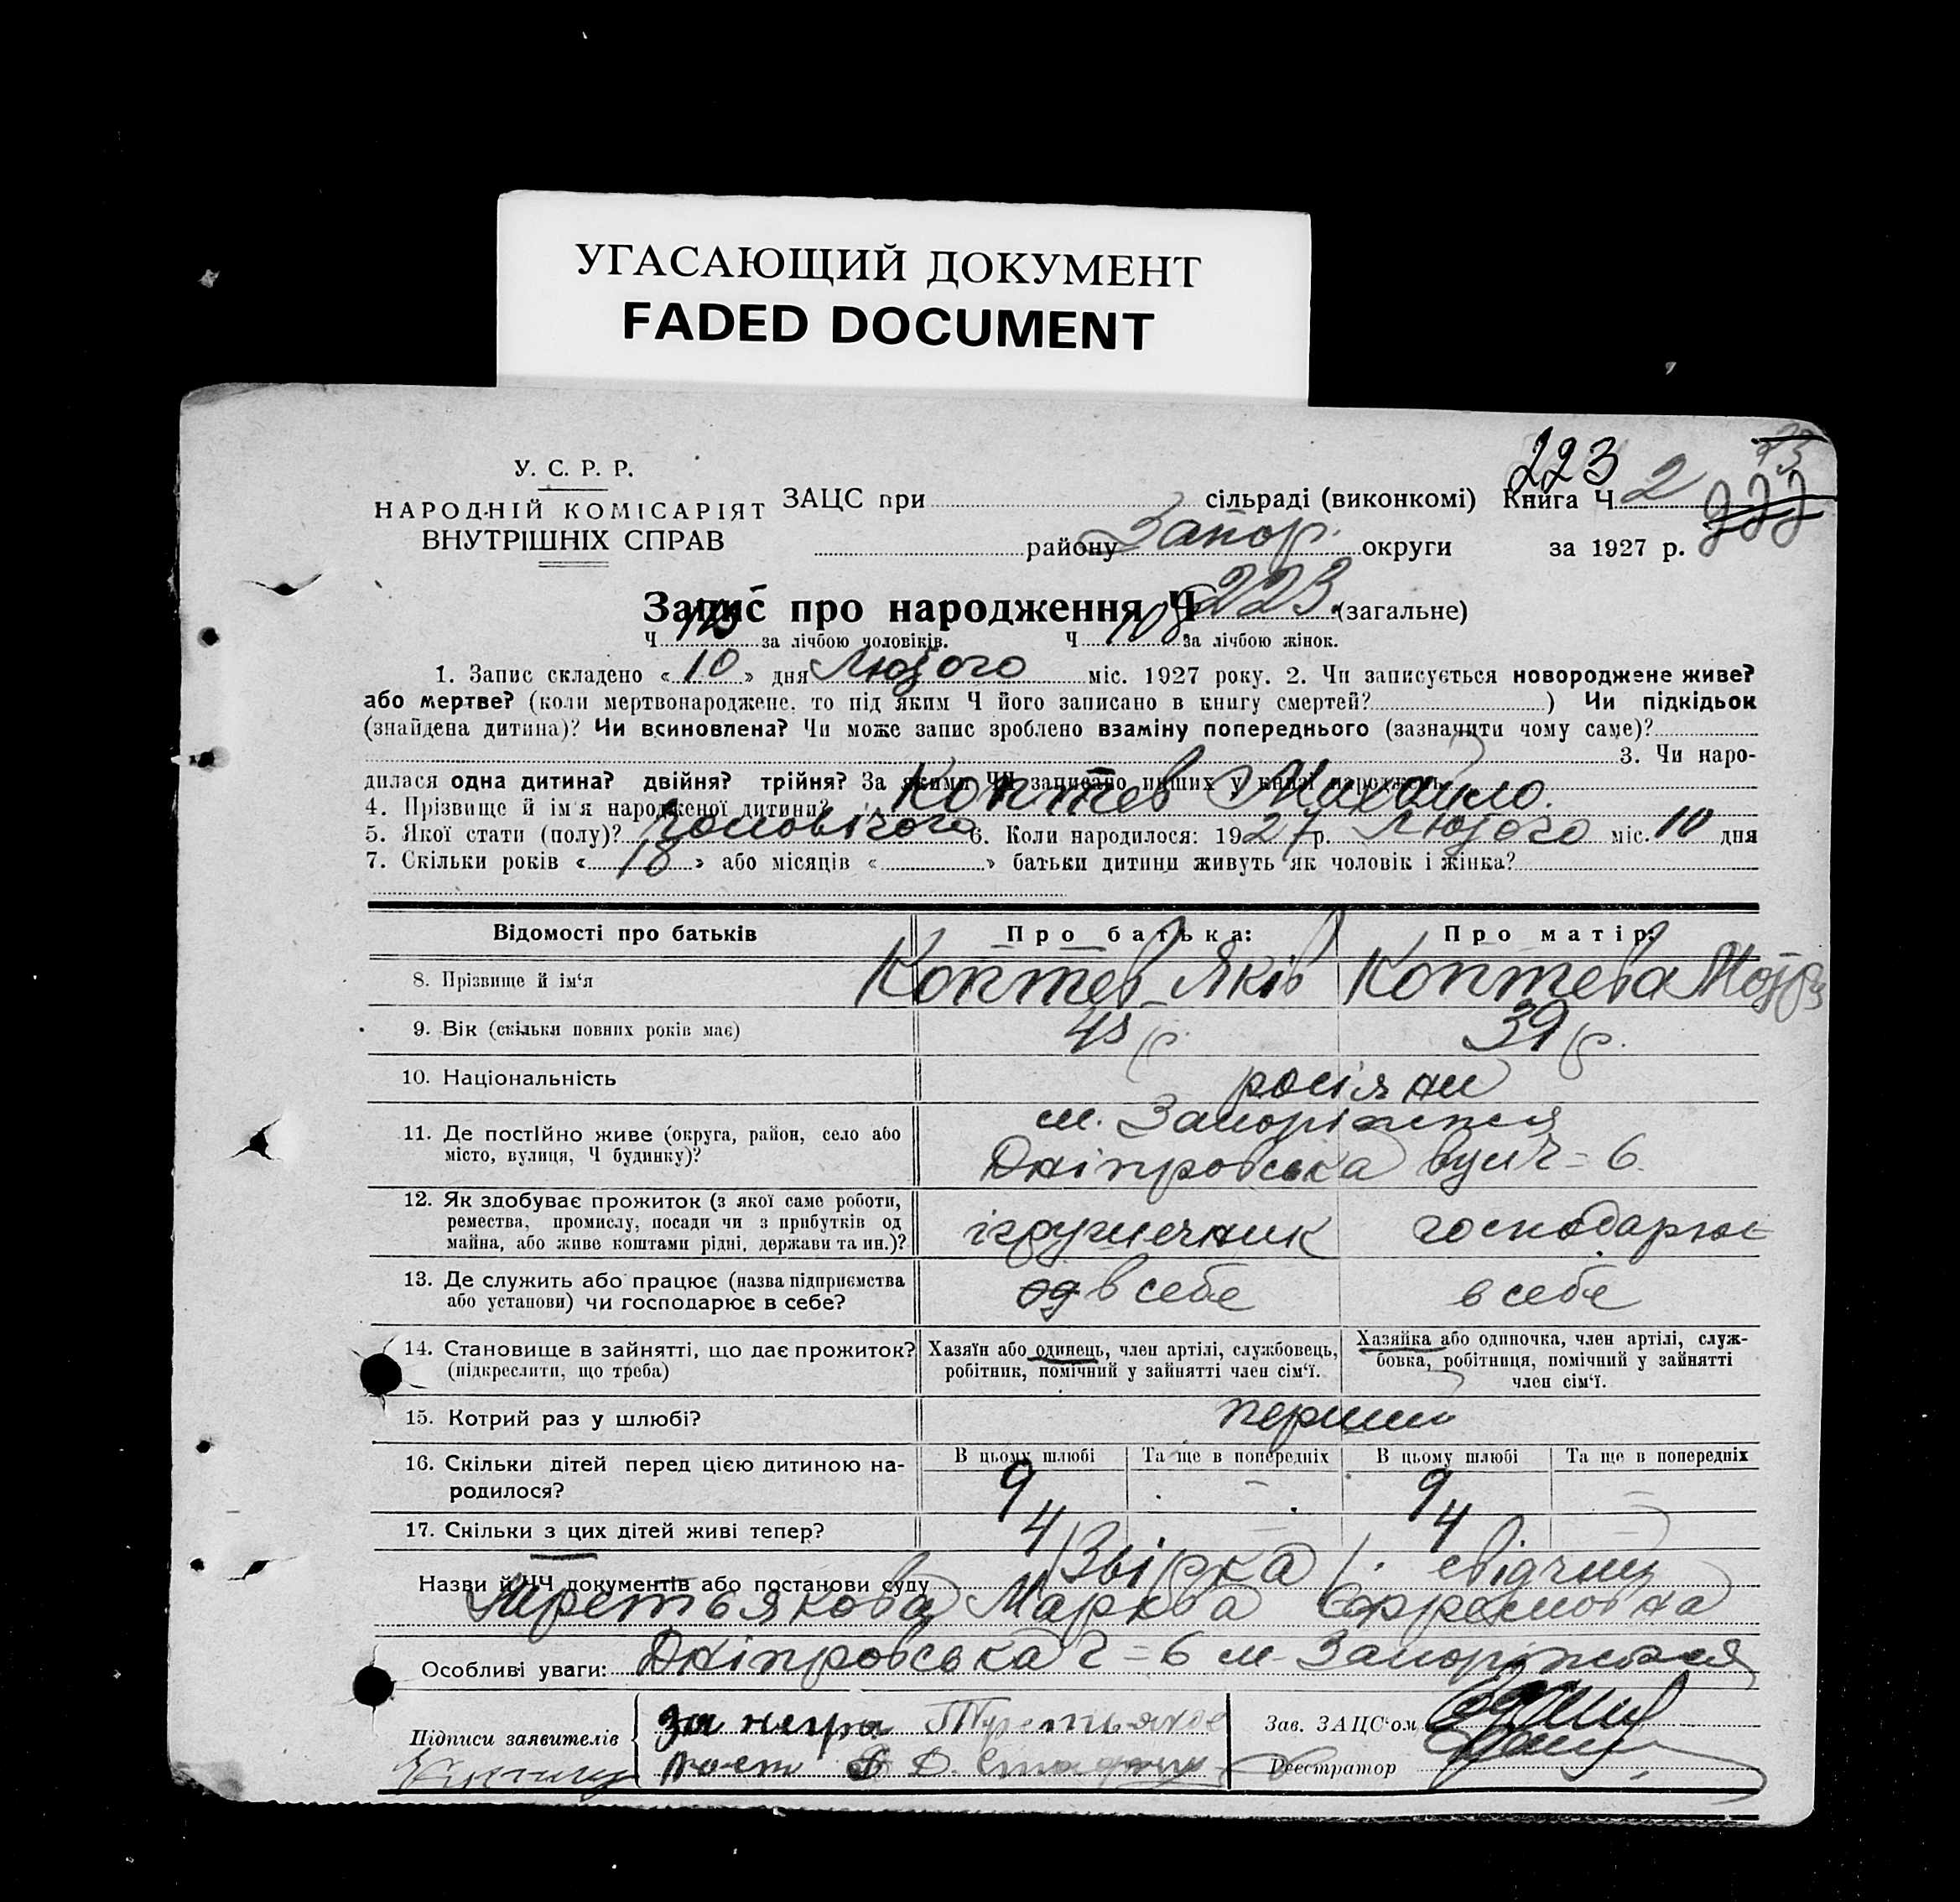 УГАСАЮЩИЙ ДОКУМЕНТ
FADED DOCUMENT
223
У. С. Р. Р.
НАРОДНІЙ КОМІСАРІЯТ
ВНУТРІШНІХ СПРАВ
ЗАЦС при сільраді (виконкомі) Книга Ч 2
району Запор. округи за 1927 р.
Запис про народження Ч 223 (загальне)
Ч за лічбою чоловіків. Ч 108 за лічбою жінок.
1. Запис складено « 10 » дня Лютого міс. 1927 року. 2. Чи записується новороджене живе?
або мертве? (коли мертвонароджене, то під яким Ч його записано в книгу смертей? ) Чи підкідьок
(знайдена дитина)? Чи всиновлена? Чи може запис зроблено взаміну попереднього (зазначити чому саме)?
3. Чи наро-
дилася одна дитина? двійня? трійня? За якими ЧЧ записано инших у книзі народжень
4. Прізвище й ім'я народженої дитини? Коптев Михайло.
5. Якої стати (полу)? Чоловічого 6. Коли народилося: 1927 р. Лютого міс. 10 дня
7. Скільки років « 18 » або місяців « » батьки дитини живуть як чоловік і жінка?
Відомості про батьків Про батька: Про матір:
8. Прізвище й ім'я Коптев Яків Коптева
9. Вік (скільки повних років має) 43 р. 39 р.
10. Національність росіяни
11. Де постійно живе (округа, район, село або місто, вулиця, Ч будинку)? м. Запоріжжя
Дніпровська вул Ч = 6
12. Як здобуває прожиток (з якої саме роботи,
ремества, промислу, посади чи з прибутків од
майна, або живе коштами рідні, держави та ин.)? ігрушечник господарює
13. Де служить або працює (назва підприємства
або установи) чи господарює в себе? од в себе в себе
14. Становище в зайнятті, що дає прожиток?
(підкреслити, що треба)
Хазяїн або одинець, член артілі, службовець,
робітник, помічний у зайнятті член сім'ї.
Хазяйка або одиночка, член артілі, служ-
бовка, робітниця, помічний у зайнятті
член сім'ї.
15. Котрий раз у шлюбі? перший
16. Скільки дітей перед цією дитиною на-
родилося?
В цьому шлюбі Та ще в попередніх В цьому шлюбі Та ще в попередніх
9 – 9 –
17. Скільки з цих дітей живі тепер? 4 – 4 –
Назви й ЧЧ документів або постанови суду Звірка
Третьякова Марфа Єфремовна
Особливі уваги: Дніпровська Ч = 6 м. Запоріжжя
Підписи заявителів за негра Третьякова
Зав. ЗАЦС'ом
Реєстратор